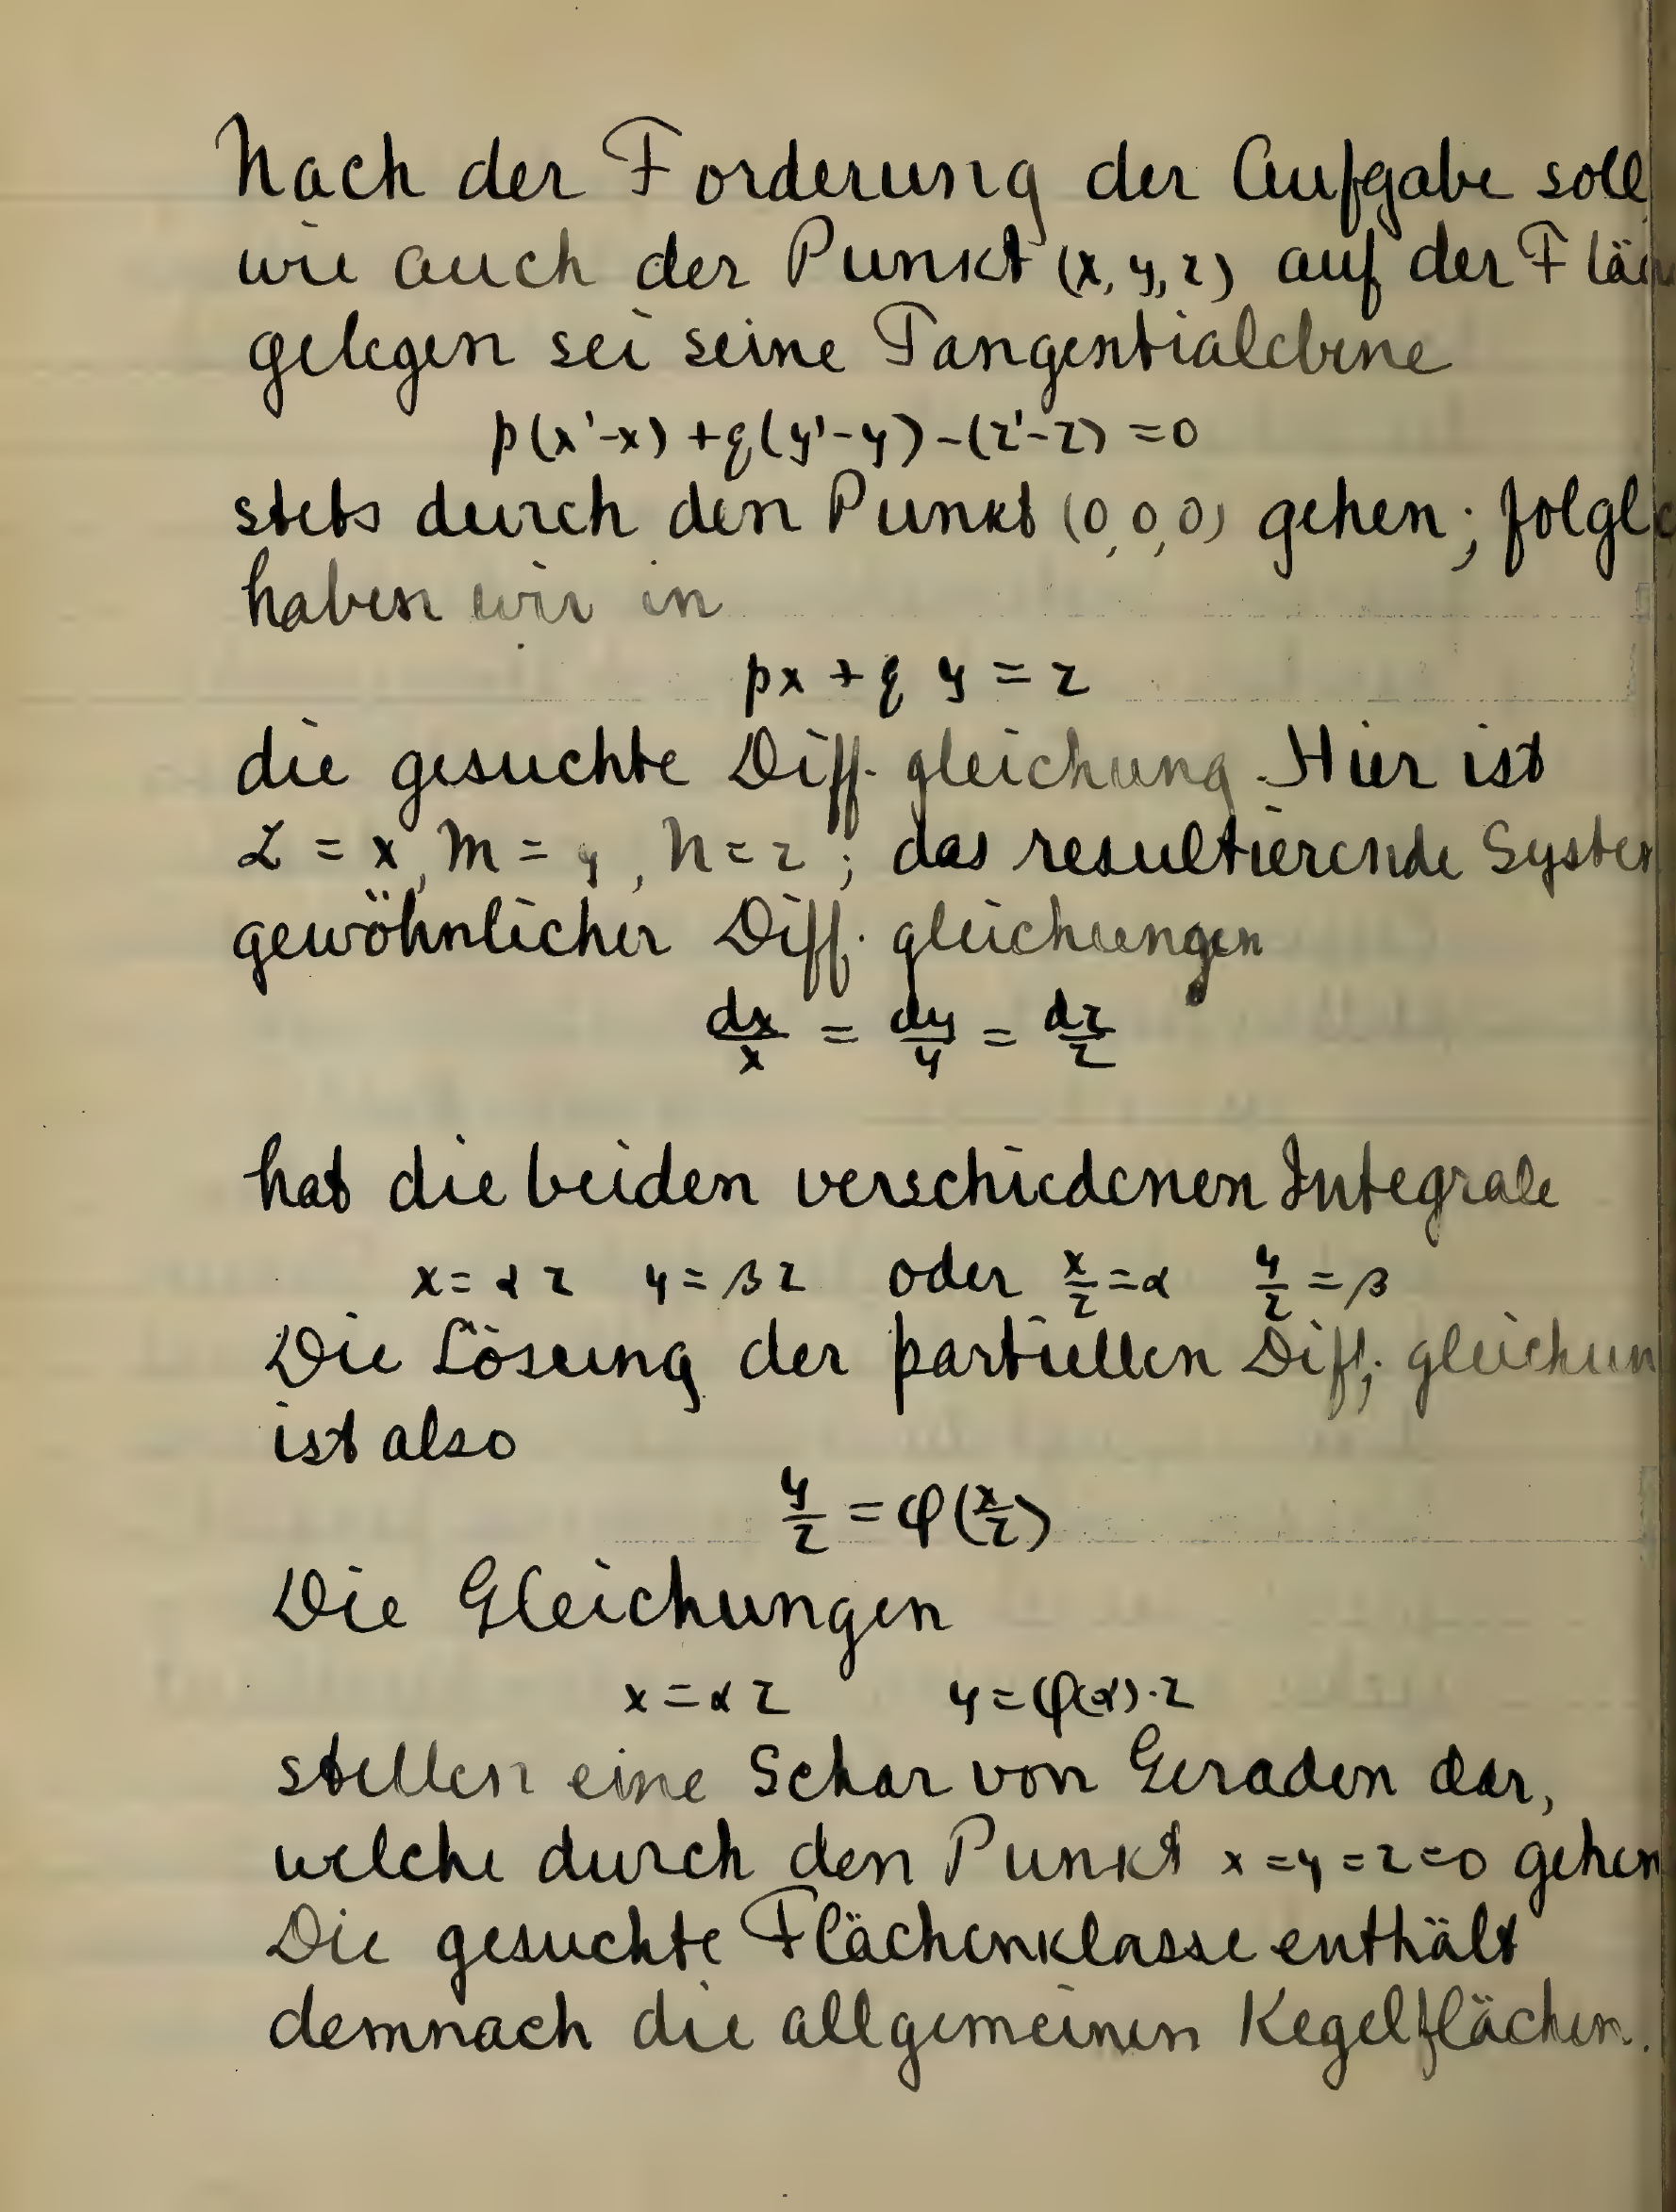 Nach der Forderung der Aufgabe soll
wie auch der Punkt (x, y, z) auf der Fläc
gelegen sei seine Tangentialebene
p(x'-x) + q(y'-y) - (z'-z) = 0
stets durch den Punkt (0,0,0) gehen; folgl
haben wir in
px + q y = z
die gesuchte Diff. gleichung. Hier ist
L = x, M = y, N = z; das resultierende System
gewöhnlicher Diff. gleichungen
dx/x = dy/y = dz/z
hat die beiden verschiedenen Integrale
x = α z y = β z oder x/z = α y/z = β
Die Lösung der partiellen Diff. gleichun
ist also
y/z = φ(x/z)
Die Gleichungen
x = α z y = φ(α)·z
stellen eine Schar von Geraden dar,
welche durch den Punkt x = y = z = 0 gehen
Die gesuchte Flächenklasse enthält
demnach die allgemeinen Kegelflächen.